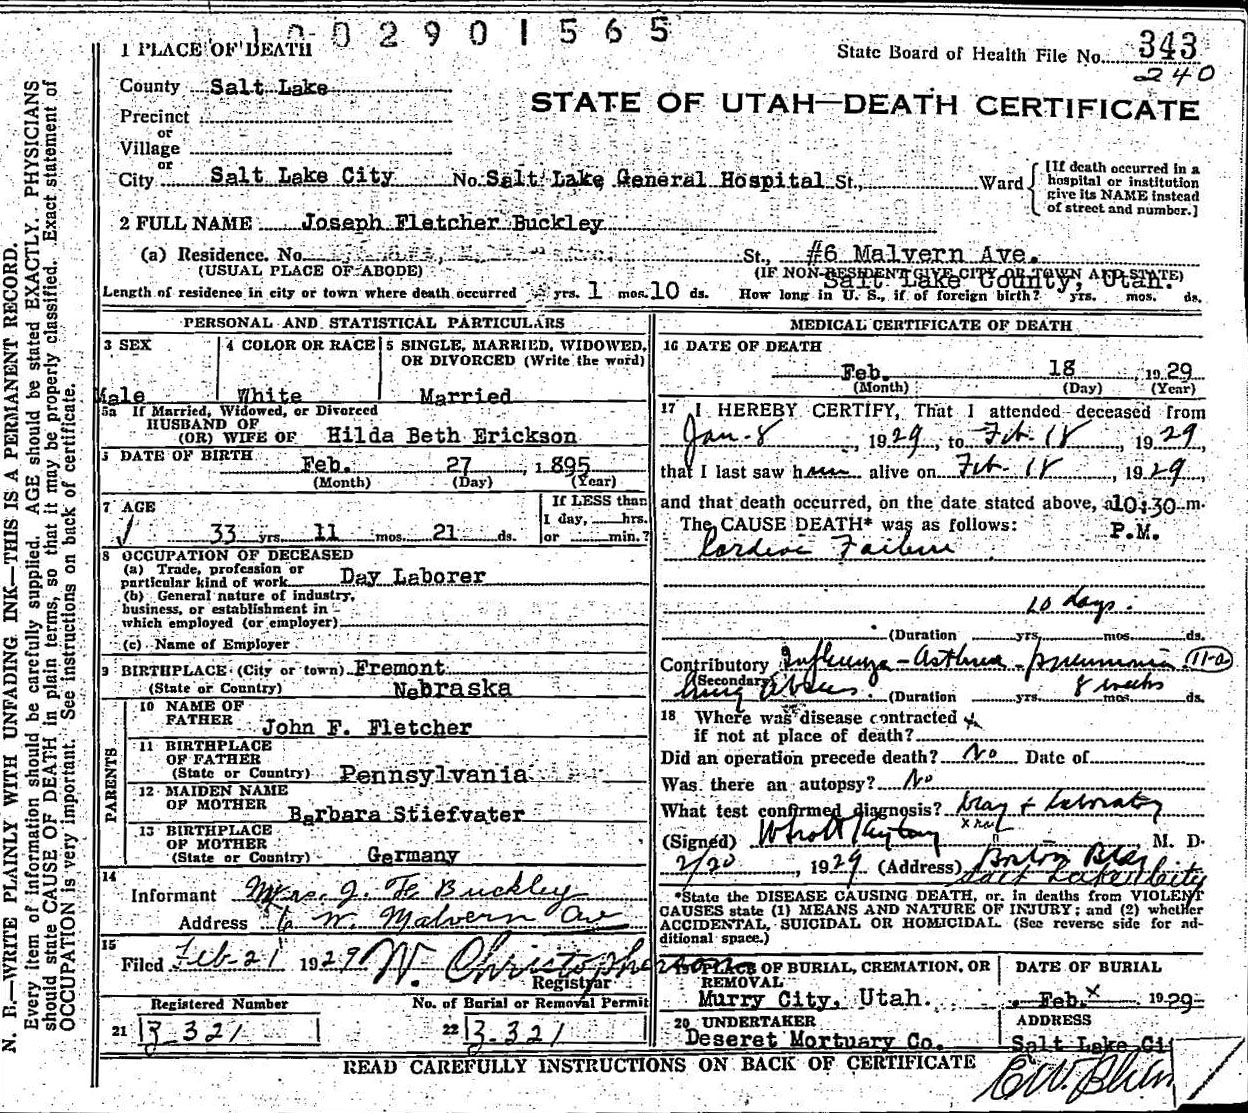 0 0 2 9 0 1 5 6 5
1 PLACE OF DEATH
State Board of Health File No. 343
240
County Salt Lake
STATE OF UTAH—DEATH CERTIFICATE
Precinct
or
Village
or
City Salt Lake City No. Salt Lake General Hospital St., Ward
[If death occurred in a hospital or institution give its NAME instead of street and number.]
2 FULL NAME Joseph Fletcher Buckley
(a) Residence. No. St., #6 Malvern Ave.
(USUAL PLACE OF ABODE) (IF NON-RESIDENT GIVE CITY OR TOWN AND STATE)
Salt Lake County, Utah.
Length of residence in city or town where death occurred yrs. 1 mos. 10 ds. How long in U. S., if of foreign birth? yrs. mos. ds.
PERSONAL AND STATISTICAL PARTICULARS
3 SEX 4 COLOR OR RACE 5 SINGLE, MARRIED, WIDOWED, OR DIVORCED (Write the word)
Male White Married
5a If Married, Widowed, or Divorced
HUSBAND OF
(OR) WIFE OF Hilda Beth Erickson
DATE OF BIRTH Feb. 27, 1895
(Month) (Day) (Year)
7 AGE
33 yrs. 11 mos. 21 ds.
If LESS than
1 day, hrs.
or min.?
8 OCCUPATION OF DECEASED
(a) Trade, profession or
particular kind of work Day Laborer
(b) General nature of industry,
business, or establishment in
which employed (or employer)
(c) Name of Employer
9 BIRTHPLACE (City or town) Fremont
(State or Country) Nebraska
PARENTS
10 NAME OF
FATHER John F. Fletcher
11 BIRTHPLACE
OF FATHER
(State or Country) Pennsylvania
12 MAIDEN NAME
OF MOTHER Barbara Stiefvater
13 BIRTHPLACE
OF MOTHER
(State or Country) Germany
14
Informant Mrs. J. F. Buckley
Address 6 W. Malvern Av
15
Filed Feb-21 1929 W. Christopherson
Registrar
Registered Number No. of Burial or Removal Permit
21 B-321 22 B-321
MEDICAL CERTIFICATE OF DEATH
16 DATE OF DEATH
Feb. 18 1929
(Month) (Day) (Year)
17 I HEREBY CERTIFY, That I attended deceased from
Jan-8, 1929, to Feb-18, 1929
that I last saw him alive on Feb-18, 1929,
and that death occurred, on the date stated above, a 10:30 m.
P.M.
The CAUSE DEATH* was as follows:
Cardiac Failure
10 days.
(Duration yrs. mos. ds.
Contributory Influenza - Asthma - pneumonia 11-a
(Secondary)
Lung Abscess. (Duration yrs. mos. ds.
8 weeks
18 Where was disease contracted
if not at place of death?
Did an operation precede death? No Date of
Was there an autopsy? No
What test confirmed diagnosis? Xray + Laboratory
x ray
(Signed) M. D.
2/20, 1929 (Address) Boston Bldg
Salt Lake City
*State the DISEASE CAUSING DEATH, or, in deaths from VIOLENT
CAUSES state (1) MEANS AND NATURE OF INJURY; and (2) whether
ACCIDENTAL, SUICIDAL OR HOMICIDAL. (See reverse side for ad-
ditional space.)
19 PLACE OF BURIAL, CREMATION, OR
REMOVAL
Murry City, Utah.
DATE OF BURIAL
Feb. x 1929
20 UNDERTAKER
Deseret Mortuary Co.
ADDRESS
Salt Lake Ci
READ CAREFULLY INSTRUCTIONS ON BACK OF CERTIFICATE
N. B.—WRITE PLAINLY WITH UNFADING INK—THIS IS A PERMANENT RECORD.
Every item of information should be carefully supplied. AGE should be stated EXACTLY. PHYSICIANS
should state CAUSE OF DEATH in plain terms, so that it may be properly classified. Exact statement of
OCCUPATION is very important. See instructions on back of certificate.